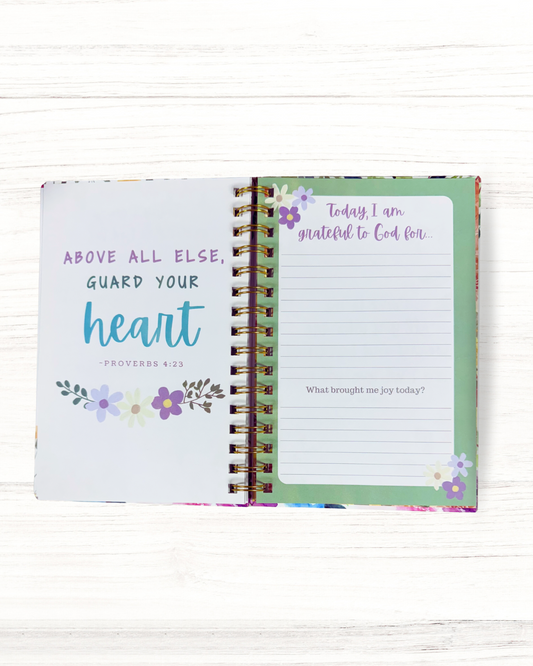 ABOVE ALL ELSE,
GUARD YOUR
heart
-PROVERBS 4:23
Today, I am
grateful to God for...
What brought me joy today?